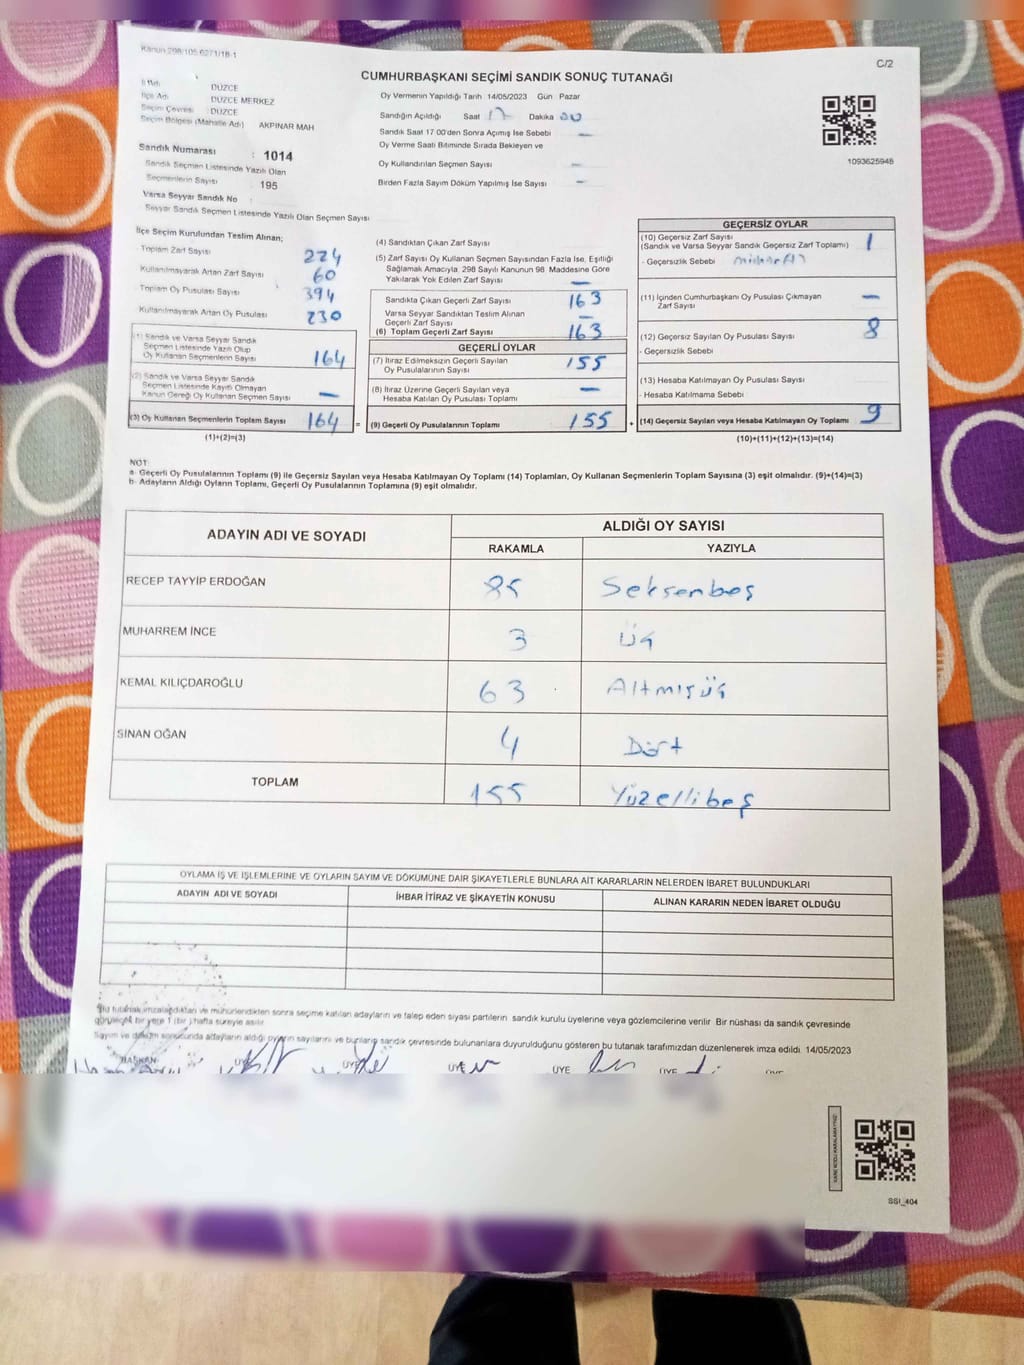 Kanun 298/105-6271/18-1
C/2
CUMHURBAŞKANI SEÇİMİ SANDIK SONUÇ TUTANAĞI
İl Adı : DÜZCE
İlçe Adı : DÜZCE MERKEZ
Seçim Çevresi : DÜZCE
Seçim Bölgesi (Mahalle Adı) : AKPINAR MAH
Sandık Numarası : 1014
Sandık Seçmen Listesinde Yazılı Olan
Seçmenlerin Sayısı : 195
Varsa Seyyar Sandık No :
Seyyar Sandık Seçmen Listesinde Yazılı Olan Seçmen Sayısı
Oy Vermenin Yapıldığı Tarih 14/05/2023 Gün Pazar
Sandığın Açıldığı Saat 17 Dakika 00
Sandık Saat 17:00'den Sonra Açımış İse Sebebi —
Oy Verme Saati Bitiminde Sırada Bekleyen ve
Oy Kullandırılan Seçmen Sayısı —
Birden Fazla Sayım Döküm Yapılmış İse Sayısı —
1093625948
İlçe Seçim Kurulundan Teslim Alınan;
Toplam Zarf Sayısı 224
Kullanılmayarak Artan Zarf Sayısı 60
Toplam Oy Pusulası Sayısı 394
Kullanılmayarak Artan Oy Pusulası 230
(1) Sandık ve Varsa Seyyar Sandık
Seçmen Listesinde Yazılı Olup
Oy Kullanan Seçmenlerin Sayısı 164
(2) Sandık ve Varsa Seyyar Sandık
Seçmen Listesinde Kayıtlı Olmayan
Kanun Gereği Oy Kullanan Seçmen Sayısı —
(3) Oy Kullanan Seçmenlerin Toplam Sayısı 164 =
(1)+(2)=(3)
(4) Sandıktan Çıkan Zarf Sayısı
(5) Zarf Sayısı Oy Kullanan Seçmen Sayısından Fazla İse, Eşitliği
Sağlamak Amacıyla, 298 Sayılı Kanunun 98. Maddesine Göre
Yakılarak Yok Edilen Zarf Sayısı —
Sandıkta Çıkan Geçerli Zarf Sayısı 163
Varsa Seyyar Sandıktan Teslim Alınan
Geçerli Zarf Sayısı —
(6) Toplam Geçerli Zarf Sayısı 163
GEÇERLİ OYLAR
(7) İtiraz Edilmeksizin Geçerli Sayılan
Oy Pusulalarının Sayısı 155
(8) İtiraz Üzerine Geçerli Sayılan veya
Hesaba Katılan Oy Pusulası Toplamı —
(9) Geçerli Oy Pusulalarının Toplamı 155 +
GEÇERSİZ OYLAR
(10) Geçersiz Zarf Sayısı
(Sandık ve Varsa Seyyar Sandık Geçersiz Zarf Toplamı) 1
- Geçersizlik Sebebi
(11) İçinden Cumhurbaşkanı Oy Pusulası Çıkmayan
Zarf Sayısı —
(12) Geçersiz Sayılan Oy Pusulası Sayısı 8
- Geçersizlik Sebebi
(13) Hesaba Katılmayan Oy Pusulası Sayısı
- Hesaba Katılmama Sebebi
(14) Geçersiz Sayılan veya Hesaba Katılmayan Oy Toplamı 9
(10)+(11)+(12)+(13)=(14)
NOT:
a- Geçerli Oy Pusulalarının Toplamı (9) ile Geçersiz Sayılan veya Hesaba Katılmayan Oy Toplamı (14) Toplamları, Oy Kullanan Seçmenlerin Toplam Sayısına (3) eşit olmalıdır. (9)+(14)=(3)
b- Adayların Aldığı Oyların Toplamı, Geçerli Oy Pusulalarının Toplamına (9) eşit olmalıdır.
ADAYIN ADI VE SOYADI ALDIĞI OY SAYISI
RAKAMLA YAZIYLA
RECEP TAYYİP ERDOĞAN 85 Seksenbeş
MUHARREM İNCE 3 Üç
KEMAL KILIÇDAROĞLU 63 Altmışüç
SİNAN OĞAN 4 Dört
TOPLAM 155 Yüzellibeş
OYLAMA İŞ VE İŞLEMLERİNE VE OYLARIN SAYIM VE DÖKÜMÜNE DAİR ŞİKAYETLERLE BUNLARA AİT KARARLARIN NELERDEN İBARET BULUNDUKLARI
ADAYIN ADI VE SOYADI İHBAR İTİRAZ VE ŞİKAYETİN KONUSU ALINAN KARARIN NEDEN İBARET OLDUĞU
Bu tutanak imzalandıktan ve mühürlendikten sonra seçime katılan adayların ve talep eden siyasi partilerin sandık kurulu üyelerine veya gözlemcilerine verilir Bir nüshası da sandık çevresinde
görülecek bir yere 1 (bir ) hafta süreyle asılır.
Sayım ve döküm sonucunda adayların aldığı oyların sayılarını ve bunların sandık çevresinde bulunanlara duyurulduğunu gösteren bu tutanak tarafımızdan düzenlenerek imza edildi. 14/05/2023
BAŞKAN ÜYE ÜYE ÜYE ÜYE ÜYE
SSI_404